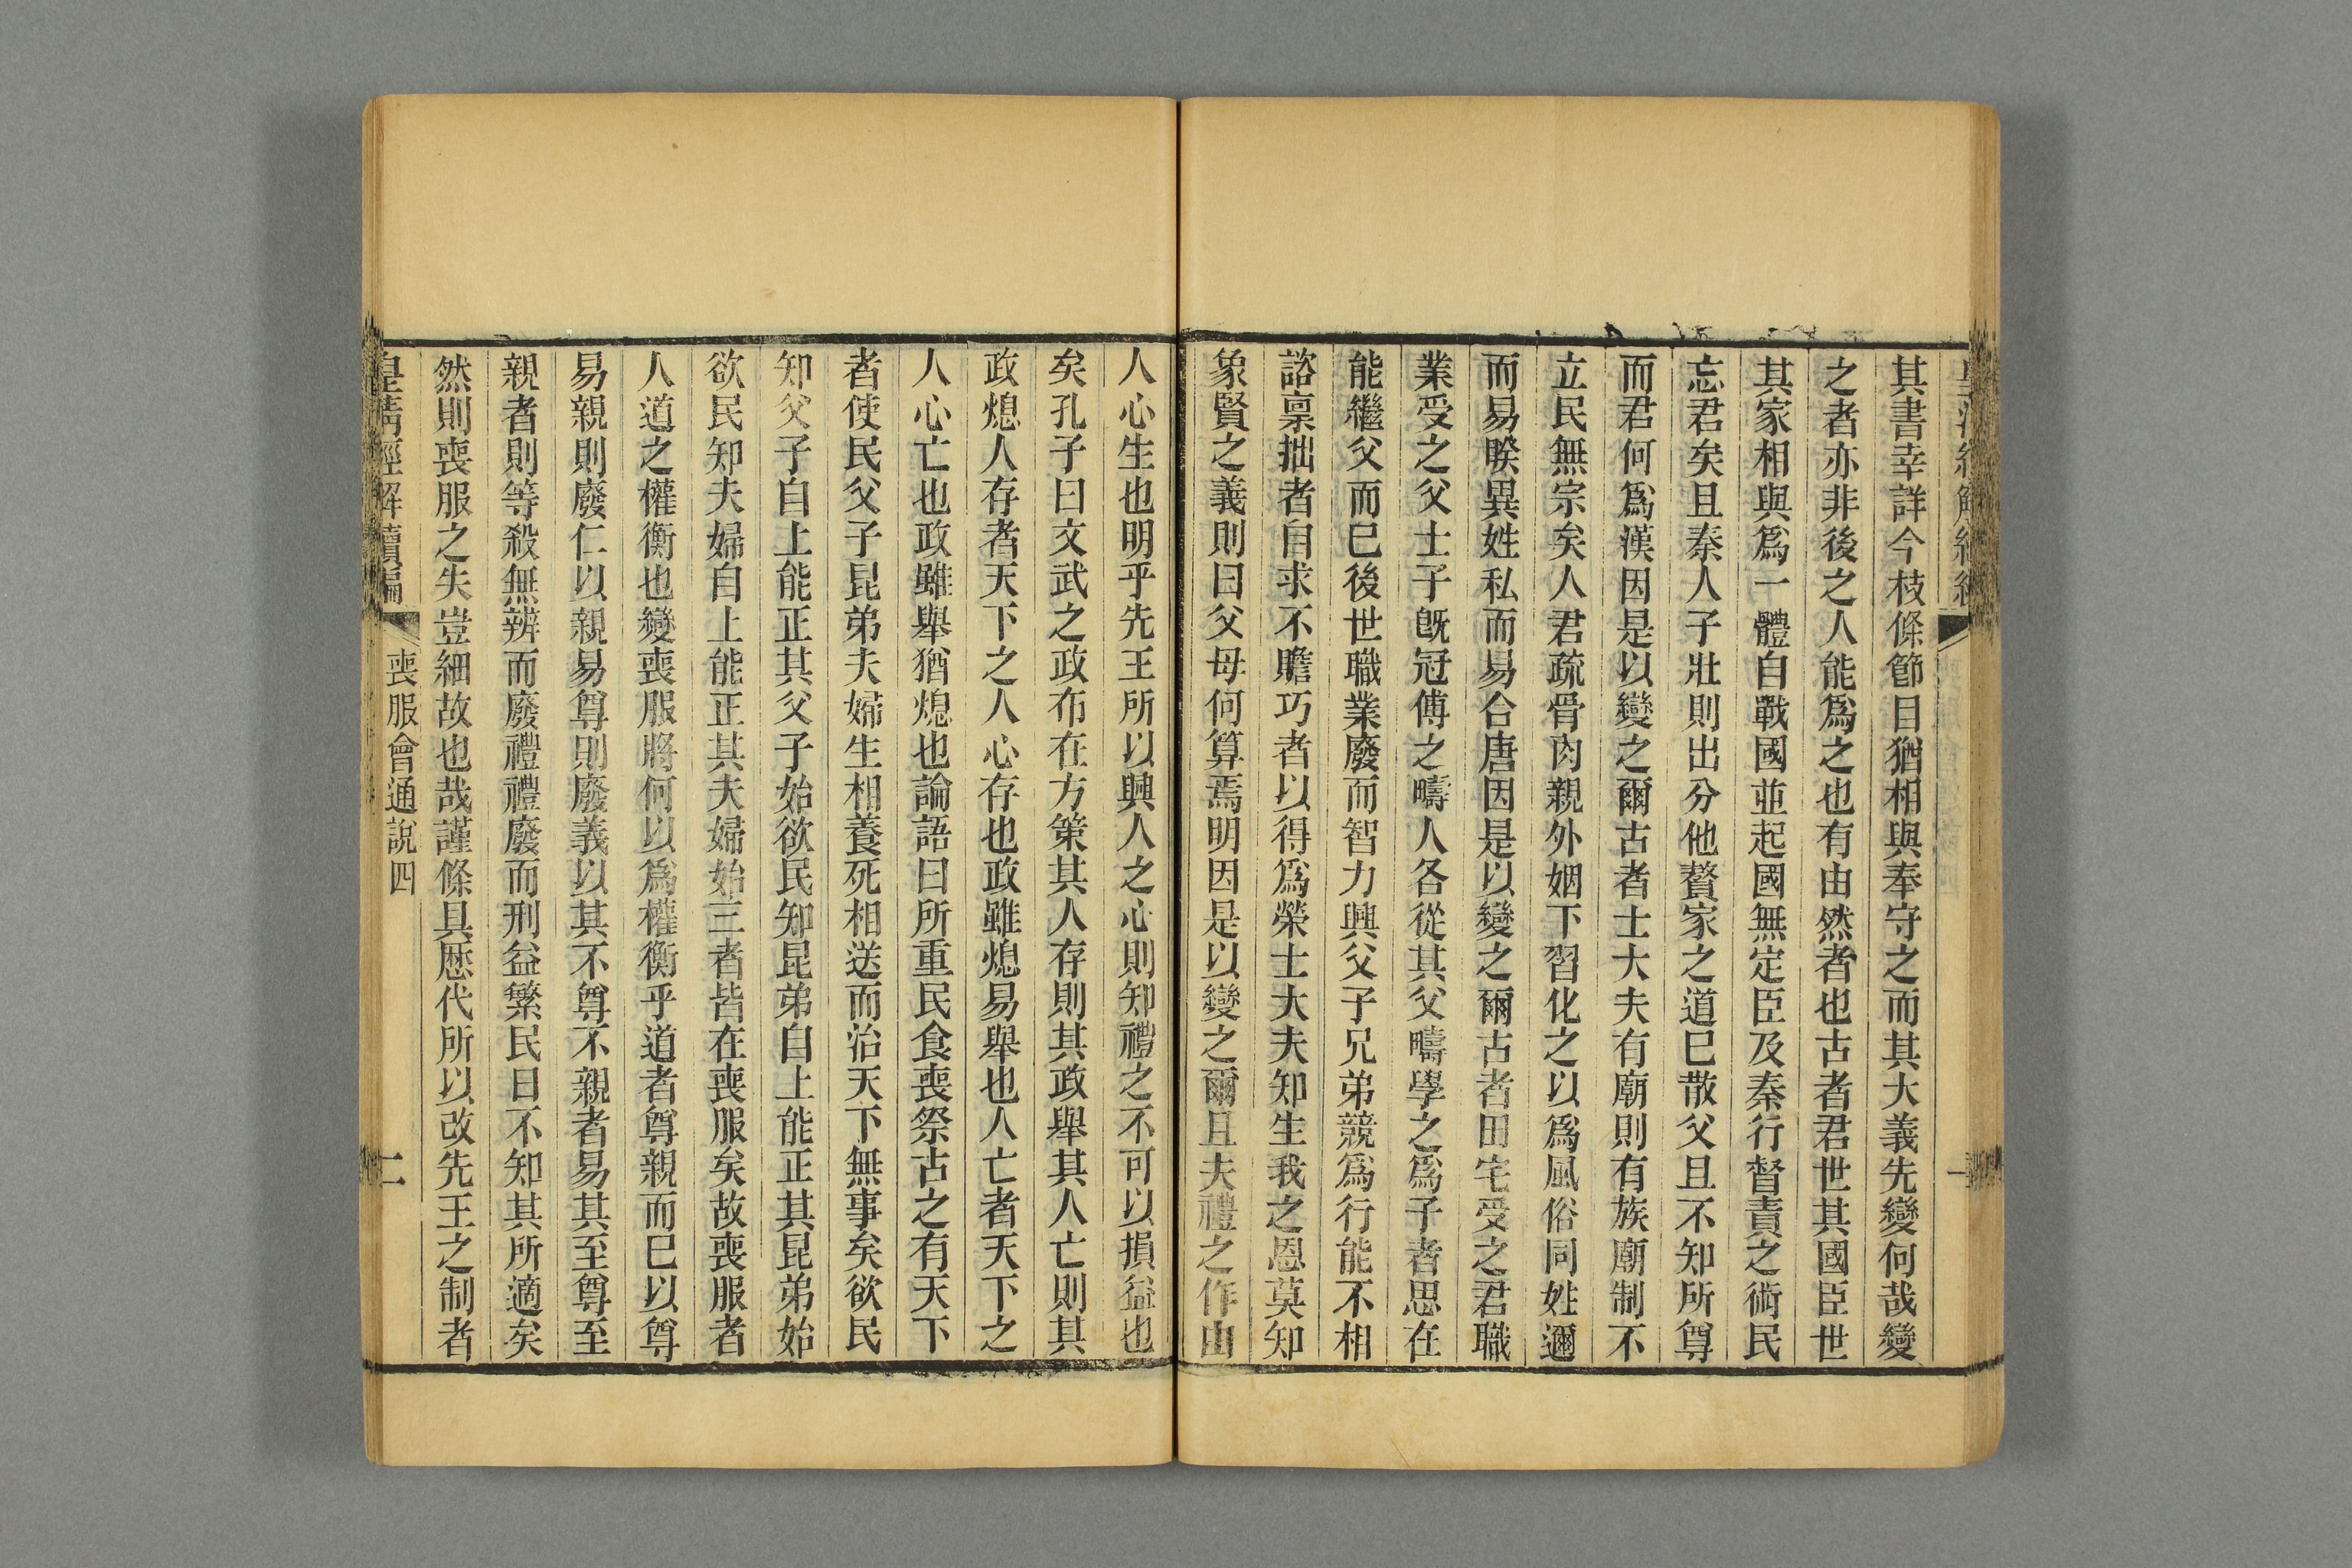 其書幸詳今枝條節目猶相與奉守之而其大義先變何哉變
之者亦非後之人能爲之也有由然者也古者君世其國臣世
其家相與爲一體自戰國並起國無定臣及秦行督責之術民
忘君矣且秦人子壯則出分他贅家之道已散父且不知所尊
而君何爲漢因是以變之爾古者士大夫有廟則有族廟制不
立民無宗矣人君疏骨肉親外姻下習化之以爲風俗同姓邇
而易睽異姓私而易合唐因是以變之爾古者田宅受之君職
業受之父士子旣冠傅之疇人各從其父疇學之爲子者思在
能繼父而已後世職業廢而智力興父子兄弟競爲行能不相
諮禀拙者自求不贍巧者以得爲榮士大夫知生我之恩莫知
象賢之義則曰父母何算焉明因是以變之爾且夫禮之作由
人心生也明乎先王所以興人之心則知禮之不可以損益也
矣孔子曰文武之政布在方策其人存則其政舉其人亡則其
政熄人存者天下之人心存也政雖熄易舉也人亡者天下之
人心亡也政雖舉猶熄也論語曰所重民食喪祭古之有天下
者使民父子昆弟夫婦生相養死相送而治天下無事矣欲民
知父子自上能正其父子始欲民知昆弟自上能正其昆弟始
欲民知夫婦自上能正其夫婦始三者皆在喪服矣故喪服者
人道之權衡也變喪服將何以爲權衡乎道者尊親而已以尊
易親則廢仁以親易尊則廢義以其不尊不親者易其至尊至
親者則等殺無辨而廢禮禮廢而刑益繁民日不知其所適矣
然則喪服之失豈細故也哉謹條具歷代所以改先王之制者
皇清經解續編 喪服會通說四 二